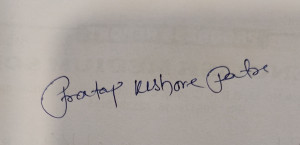 Pratap Kishore Patra